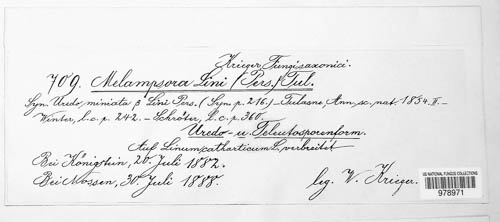 Krieger, Fungi saxonici.
709. Melampsora Lini (Pers.) Tul.
Syn. Uredo miniata β Lini Pers. (Syn. p. 216.) – Tulasne Ann. sc. nat. 1854. II. –
Winter, l. c. p. 242. – Schröter, l. c. p. 360.
Uredo- u. Teleutosporenform.
Auf Linum catharticum L. verbreitet
Bei Königstein, 20. Juli 1882.
Bei Nossen, 30. Juli 1888.
leg. W. Krieger.
US NATIONAL FUNGUS COLLECTIONS
978971